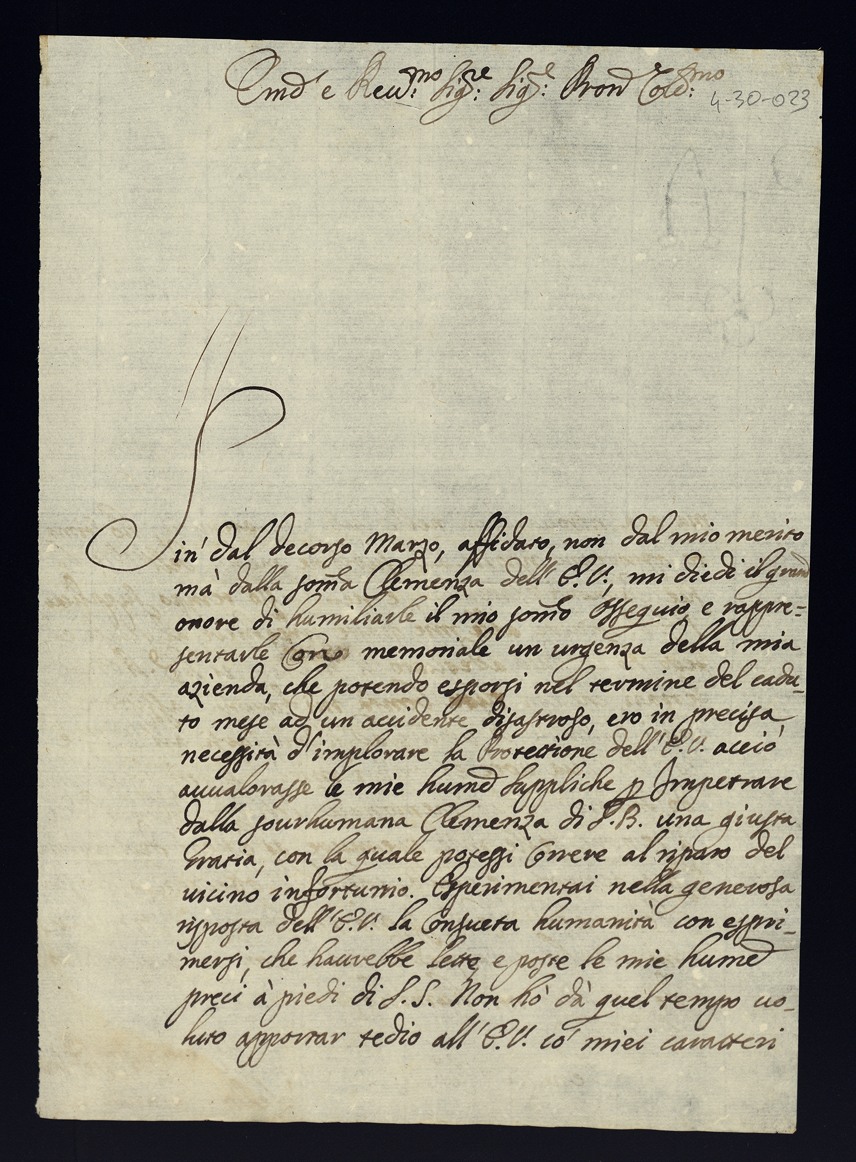 Emõ e Reuᵐᵒ: Sigʳᵉ: Sigʳᵉ: Pron Colᵐᵒ:
4-30-023
Sin' dal decorso Marzo, affidato, non dal mio merito
mà dalla som̃a Clemenza dell' E.V., mi diedi il grand
onore di humiliarle il mio som̃o ossequio, e rappre=
sentarle con memoriale un urgenza della mia
azienda, che potendo esporsi nel termine del cadu-
to mese ad un accidente disastroso, ero in precisa
necessità d'implorare la Protettione dell' E.V. acciò
auualorasse le mie hume suppliche p Impetrare
dalla sourhumana Clemenza di S.B. una giusta
Gratia, con la quale potessi Correre al riparo del
uicino infortunio. Esperimentai nella generosa
risposta dell' E.V. la Consueta humanità con espri-
mersi, che haurebbe lette, e poste le mie hume
preci à piedi di S.S. Non hò dà quel tempo uo-
luto apportar tedio all' E.V. co' miei caratteri